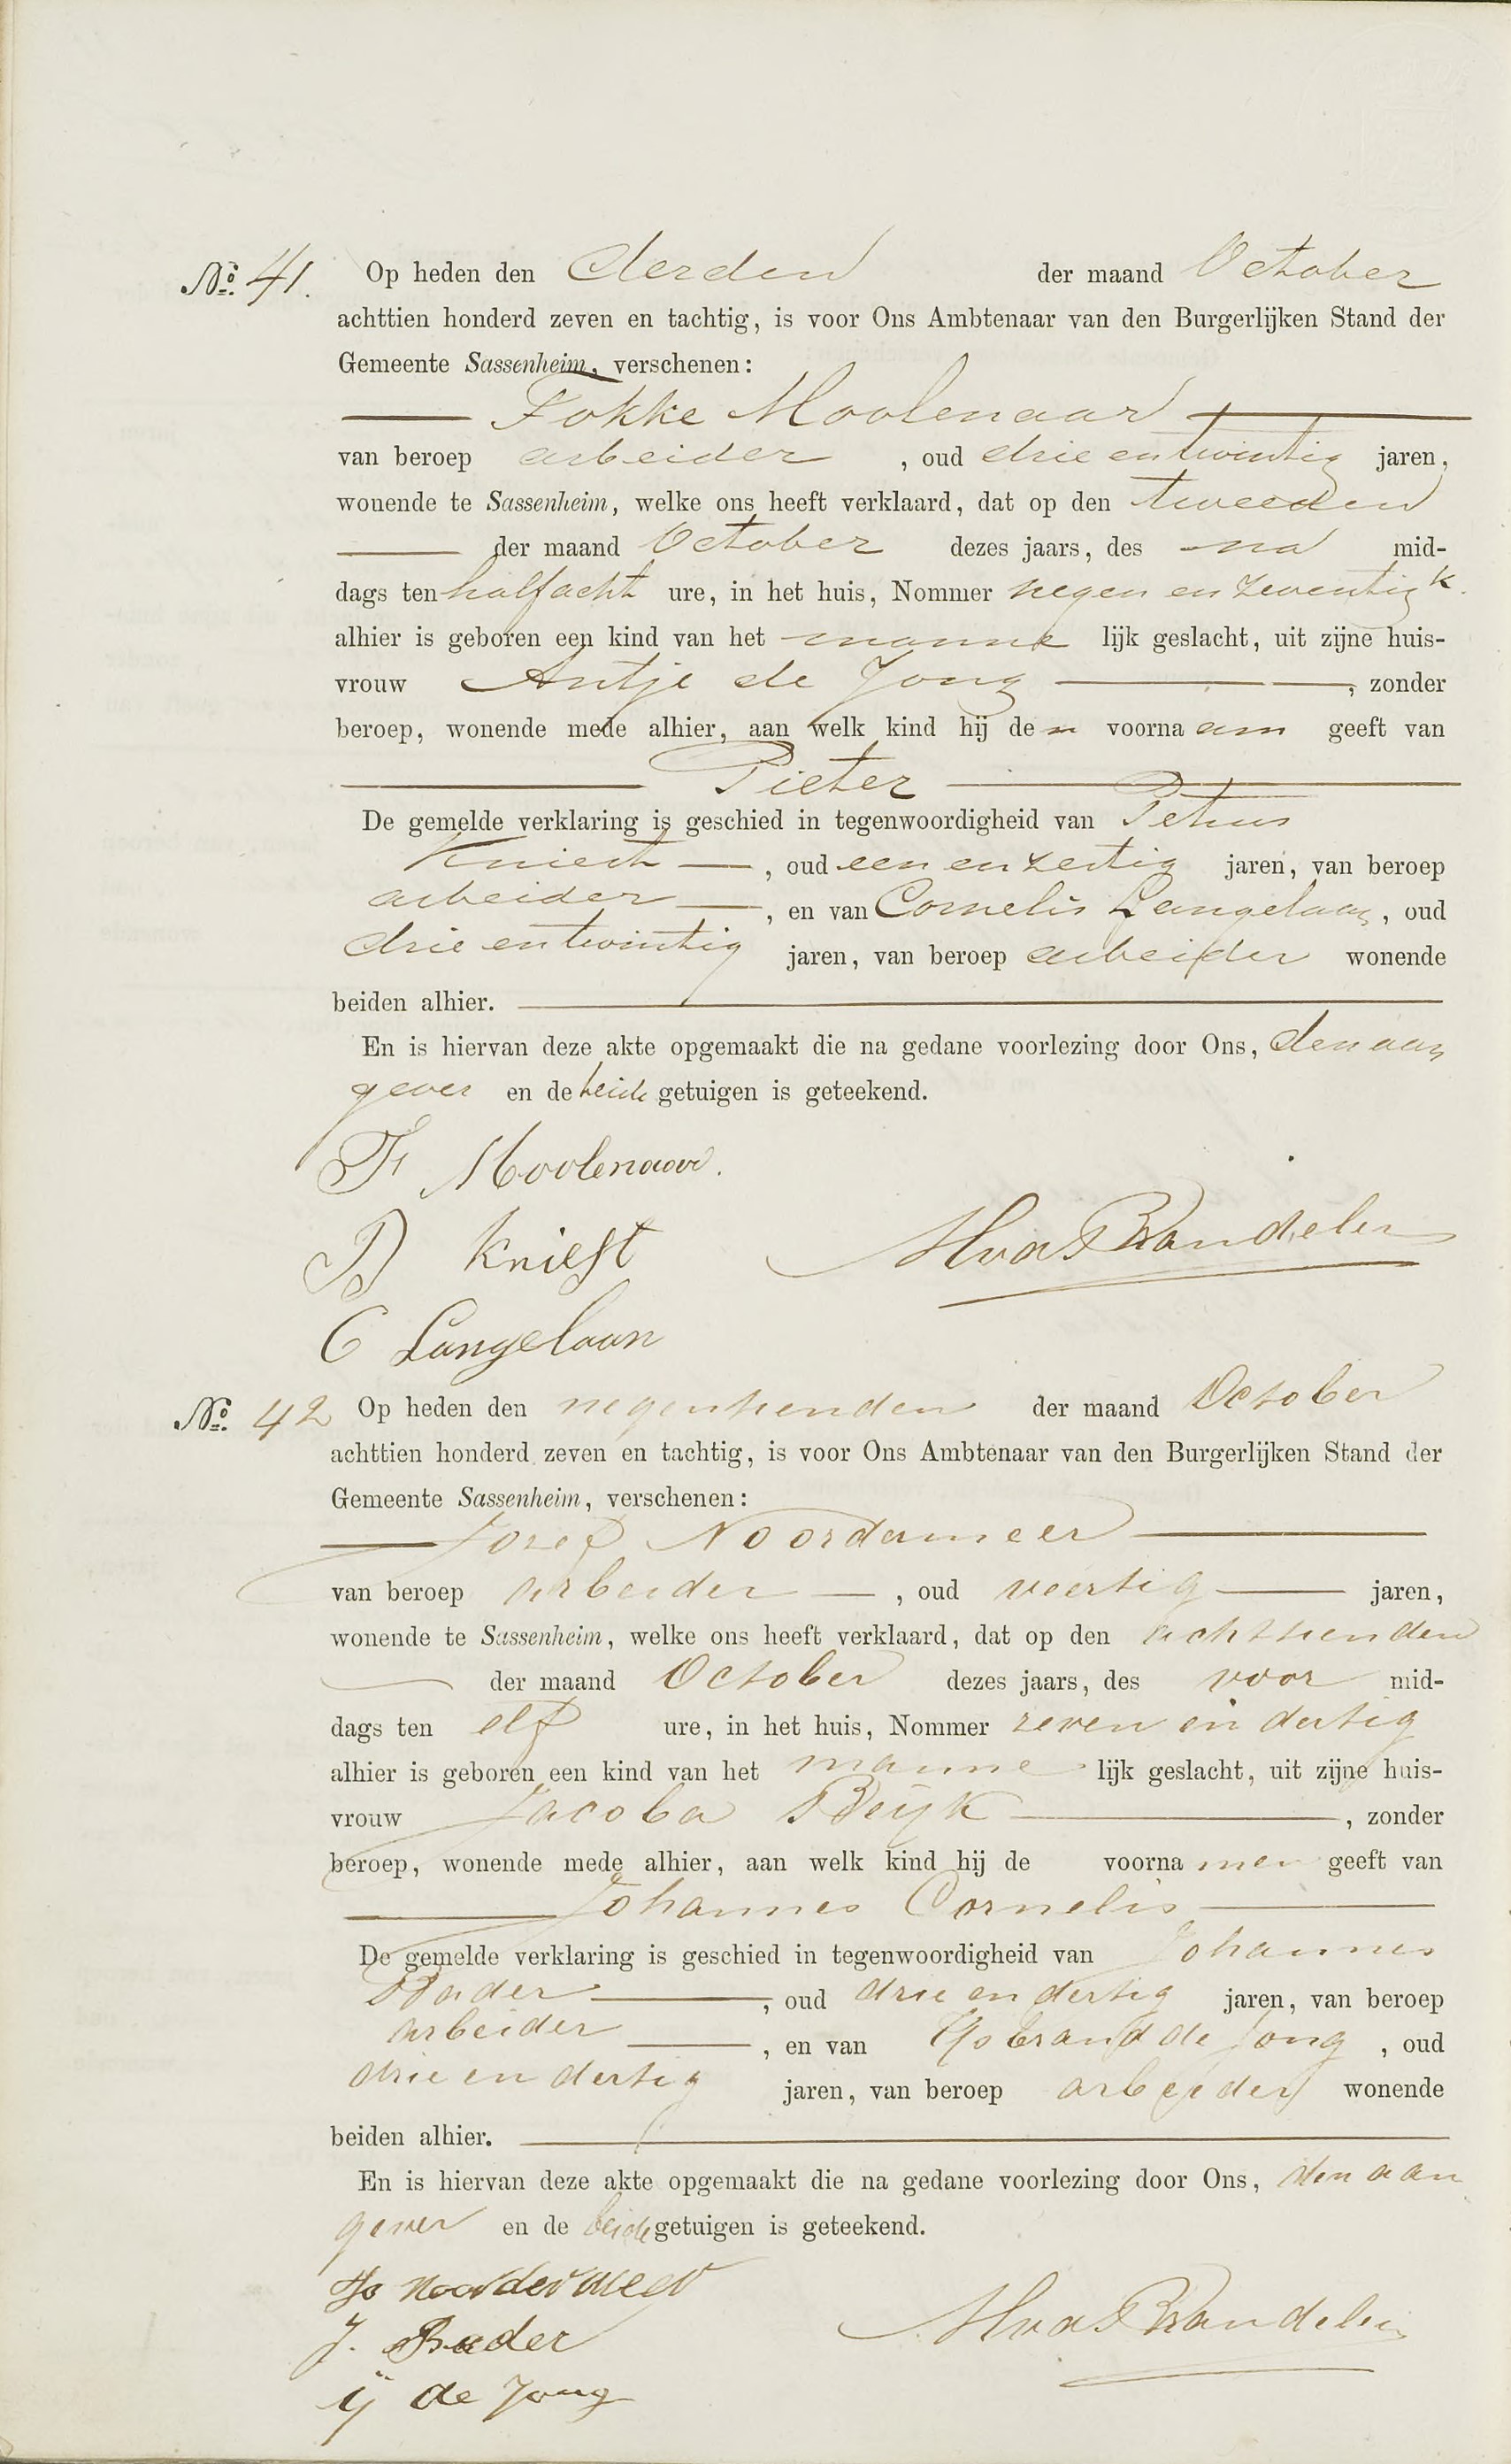 No. 41. Op heden den derden der maand October
achttien honderd zeven en tachtig, is voor Ons Ambtenaar van den Burgerlijken Stand der
Gemeente Sassenheim, verschenen:
Fokke Moolenaar
van beroep arbeider, oud drie en twintig jaren,
wonende te Sassenheim, welke ons heeft verklaard, dat op den tweeden
der maand October dezes jaars, des na mid-
dags ten half acht ure, in het huis, Nommer negen en zeventig k.
alhier is geboren een kind van het manne lijk geslacht, uit zijne huis-
vrouw Antje de Jong, zonder
beroep, wonende mede alhier, aan welk kind hij de n voorna am geeft van
Pieter
De gemelde verklaring is geschied in tegenwoordigheid van Petrus
Kniest, oud een en zestig jaren, van beroep
arbeider, en van Cornelis Langelaan, oud
drie en twintig jaren, van beroep arbeider wonende
beiden alhier.
En is hiervan deze akte opgemaakt die na gedane voorlezing door Ons, den aan
gever en de beide getuigen is geteekend.
F Moolenaar.
P Kniest
C Langelaan
No. 42 Op heden den negentienden der maand October
achttien honderd zeven en tachtig, is voor Ons Ambtenaar van den Burgerlijken Stand der
Gemeente Sassenheim, verschenen:
Jozef Noordermeer
van beroep arbeider, oud veertig jaren,
wonende te Sassenheim, welke ons heeft verklaard, dat op den achttienden
der maand October dezes jaars, des voor mid-
dags ten elf ure, in het huis, Nommer zeven en dertig
alhier is geboren een kind van het manne lijk geslacht, uit zijne huis-
vrouw Jacoba Beijk, zonder
beroep, wonende mede alhier, aan welk kind hij de voorna men geeft van
Johannes Cornelis
De gemelde verklaring is geschied in tegenwoordigheid van Johannes
Bader, oud drie en dertig jaren, van beroep
arbeider, en van IJsbrand de Jong, oud
drie en dertig jaren, van beroep arbeider wonende
beiden alhier.
En is hiervan deze akte opgemaakt die na gedane voorlezing door Ons, den aan
gever en de beide getuigen is geteekend.
Noordermeer
J. Bader
ij de Jong